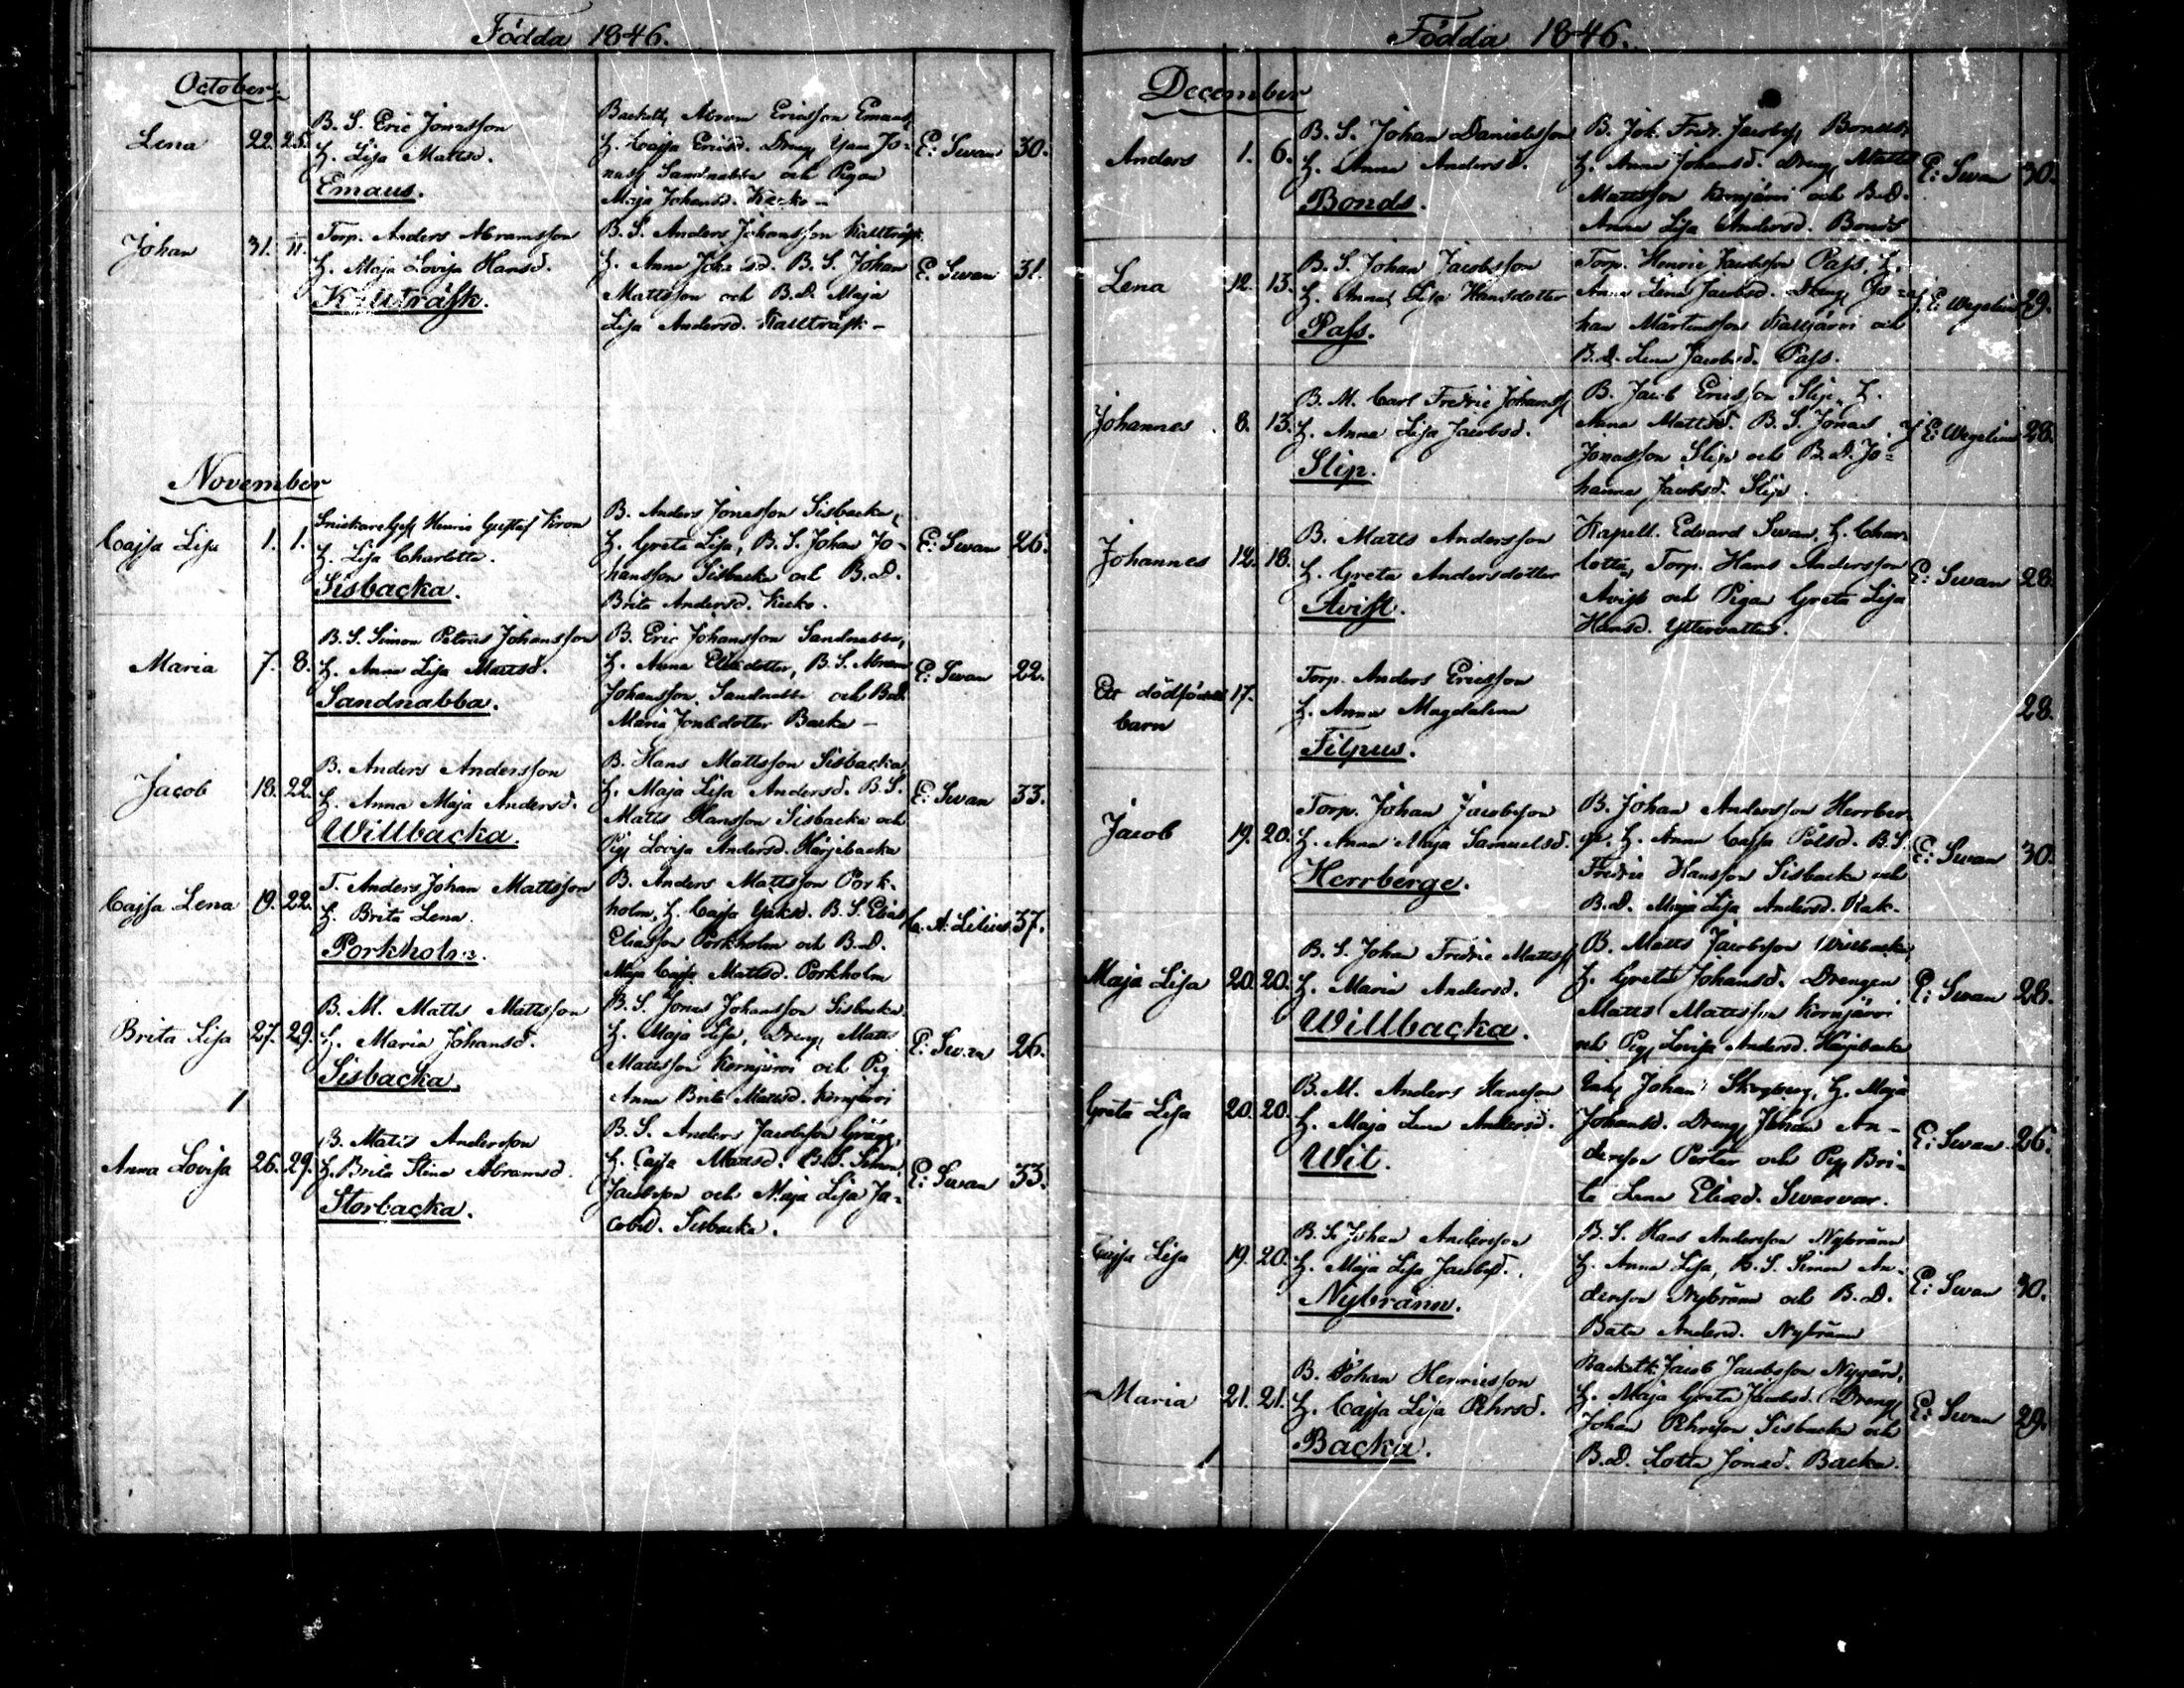 Födda 1846.
October.
Lena 22. 25. B. S. Eric Jonasson
H. Lisa Mattsd.
Emaus.
Backstk. Abram Ericsson Emaus,
H. Caisa Ericsd. Dreng Isac Jo-
nass Sandnabba och Pigan
Maja Johansd. Kecko -
E: Swan 30.
Johan 31. Torp. Anders Abramsson
H. Maja Lovisa Hansd.
Kallträsk.
B. S. Anders Johansson Kallträsk
H. Anna Johansd. B. S. Johan
Mattsson och B.D. Maja
Lisa Andersd. Kallträsk -
E: Swan 31.
November
Cajsa Lisa 1. 1. Snickare Ges. Henric Gustaf Kron
H. Lisa Charlotta.
Sisbacka.
B. Anders Jonasson Sisbacka,
H. Greta Lisa, B. S. Johan Jo-
hansson Sisbacka och B.D.
Brita Andersd. Kecko.
E: Swan 26.
Maria 7. 8. B. S. Simon Petrus Johansson
H. Anna Lisa Mattsd.
Sandnabba.
B. Eric Johansson Sandnabba,
H. Anna Eliaedotter, B. S. Abram
Johansson Sandnabba och B.D.
Maria Jonaedotter Backa -
E: Swan 22.
Jacob 18. 22. B. Anders Andersson
H. Anna Maja Andersd.
Willbacka.
B. Hans Mattsson Sisbacka,
H. Maja Lisa Andersd. B. S.
Matts Hansson Sisbacka och
Pig. Lovisa Andersd. Härjebacka
E: Swan 33.
Cajsa Lena 19. 22. T. Anders Johan Mattsson
H. Brita Lena.
Porkholm.
B. Anders Mattsson Pork-
holm, H. Cajsa Isaksd. B. S. Elias
Eliasson Porkholm och B.D.
Maja Cajsa Mattsd. Porkholm
A. Lilius 37.
Brita Lisa 27. 29. B. M. Matts Mattsson
H. Maria Johansd.
Sisbacka.
B. S. Jonas Johansson Sisbacka
H. Maja Lisa, Dreng Matts
Mattsson Kornjärvi och Pig
Anna Brita Mattsd. Kornjärvi
E: Swan 26.
Anna Lovisa 26. 29. B. Matts Andersson
H. Brita Stina Abramsd.
Storbacka.
B. S. Anders Jacobsson Grägg,
H. Cajsa Mattsd. B. S. Simon
Jacobsson och Maja Lisa Ja-
cobsd. Sisbacka.
E: Swan 33.
Födda 1846.
December
Anders 1. 6. B. S. Johan Danielsson
H. Anna Andersd.
Bonds.
B. Joh. Fredr. Jacobss. Bonds,
H. Anna Johansd. Dreng Matts
Mattsson Kornjärvi och B.D.
Anna Lisa Andersd. Bonds
E: Swan 30.
Lena 12. 13. B. S. Johan Jacobsson
H. Anna Lisa Hansdotter
Pass.
Torp. Henric Jacobsson Pass, H.
Anna Lena Jacobsd. Dreng Jo-
han Mårtensson Kalljärvi och
B.D. Lena Jacobsd. Pass.
J. E: Wegelius 29.
Johannes 8. 13. B. M. Carl Fredric Johanss.
H. Anna Lisa Jacobsd.
Slip.
B. Jacob Ericsson Slip, H.
Anna Mattsd. B. S. Jonas
Jonasson Slip och B.D. Jo-
hanna Jacobsd. Slip.
J. E: Wegelius 28.
Johannes 12. 18. B. Matts Andersson
H. Greta Andersdotter
Avist.
Kapell. Edvard Swan, H. Char-
lotta, Torp. Hans Andersson
Avist och Pigan Greta Lisa
Hansd. Yttervattes.
E: Swan 28.
Ett dödfödt 17.
barn
Torp. Anders Ericsson
H. Anna Magdalena
Filpus.
28.
Jacob 19. 20. Torp. Johan Jacobsson
H. Anna Maja Samuelsd.
Herrberge.
B. Johan Andersson Herrber-
ge. H. Anna Cajsa Pålsd. B. S.
Fredric Hansson Sisbacka och
B.D. Maja Lisa Andersd. Kak.
E: Swan 30.
Maja Lisa 20. 20. B. S. Johan Fredric Mattss.
H. Maria Andersd.
Willbacka.
B. Matts Jacobsson Willbacka,
H. Greta Johansd. Drengen
Matts Mattsson Kornjärvi
och Pig. Lovisa Andersd. Härjebacka
E: Swan 28.
Greta Lisa 20. 20. B. M. Anders Hansson
H. Maja Lena Andersd.
Wit.
Johan Skogberg, H. Maja
Johansd. Dreng Johan An-
dersson Perter och Pig. Bri-
ta Lena Eliaed. Swarvar.
E: Swan 26.
Cajsa Lisa 19. 20. B. S. Johan Andersson
H. Maja Lisa Jacobsd.
Nybränn.
B. S. Hans Andersson Nybränn
H. Anna Lisa, B. S. Simon An-
dersson Nybränn och B.D.
Andersd. Nybränn
E: Swan 30.
Maria 21. 21. B. Johan Henricsson
H. Cajsa Lisa Pehrsd.
Backa.
Backstk. Jacob Jacobsson Nygård,
H. Maja Greta Jacobsd. Dreng
Johan Pehrsson Sisbacka och
B.D. Lotta Jonaed. Backa.
E: Swan 29.